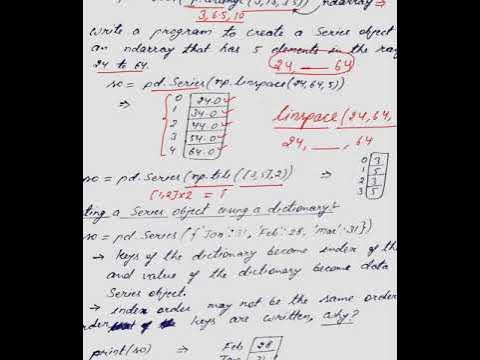 (p.arange(3,13,3.5)) ndarray ⇒
3, 6.5, 10
write a program to create a Series object
an ndarray that has 5 elements in the ran
24 to 64.
24, __ 64
so = pd.Series(np.linspace(24,64,5))
⇒ 0 24.0
1 34.0
2 44.0
3 54.0
4 64.0
linspace(24,64,
24, __, 64
so = pd.Series(np.tile([3,5],2)) ⇒
0 3
1 5
2 3
3 5
[1,2]×2 =
ting a Series object using a dictionary:
so = pd.Series({'Jan':31, 'Feb':28, 'Mar':31})
→ keys of the dictionary become index of the
and value of the dictionary become data
Series object.
→ index order may not be the same order
order keys are written, why?
print(so) ⇒ Feb 28
Jan 31